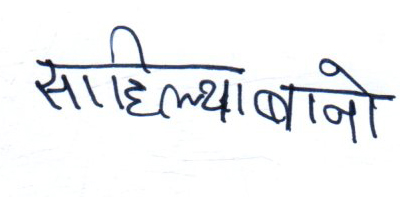 साहिल्या बानो